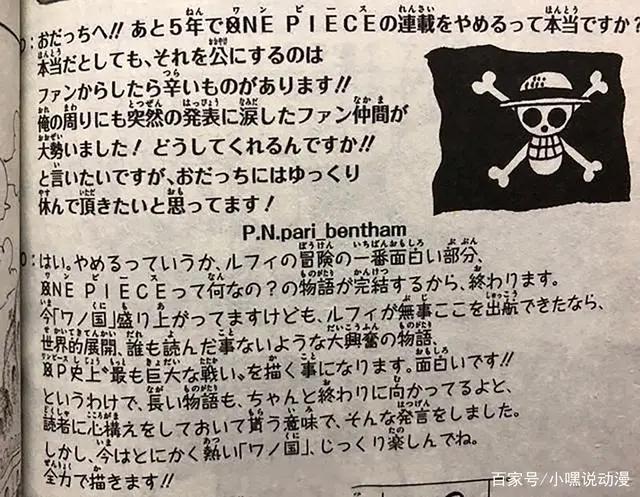 ：おだっちへ!! あと5年でONE PIECEの連載をやめるって本当ですか？
本当だとしても、それを公にするのは
ファンからしたら辛いものがあります!!
俺の周りにも突然の発表に涙したファン仲間が
大勢いました！ どうしてくれるんですか!!
と言いたいですが、おだっちにはゆっくり
休んで頂きたいと思ってます！
P.N.pari_bentham
：はい。やめるっていうか、ルフィの冒険の一番面白い部分、
ONE PIECEって何なの？の物語が完結するから、終わります。
今「ワノ国」盛り上がってますけども、ルフィが無事ここを出航できたなら、
世界的展開、誰も読んだ事ないような大興奮の物語、
OP史上"最も巨大な戦い"を描く事になります。面白いです!!
というわけで、長い物語も、ちゃんと終わりに向かってるよと、
読者に心構えをしておいて貰う意味で、そんな発言をしました。
しかし、今はとにかく熱い「ワノ国」、じっくり楽しんでね。
全力で描きます!!
百家号/小嘿说动漫